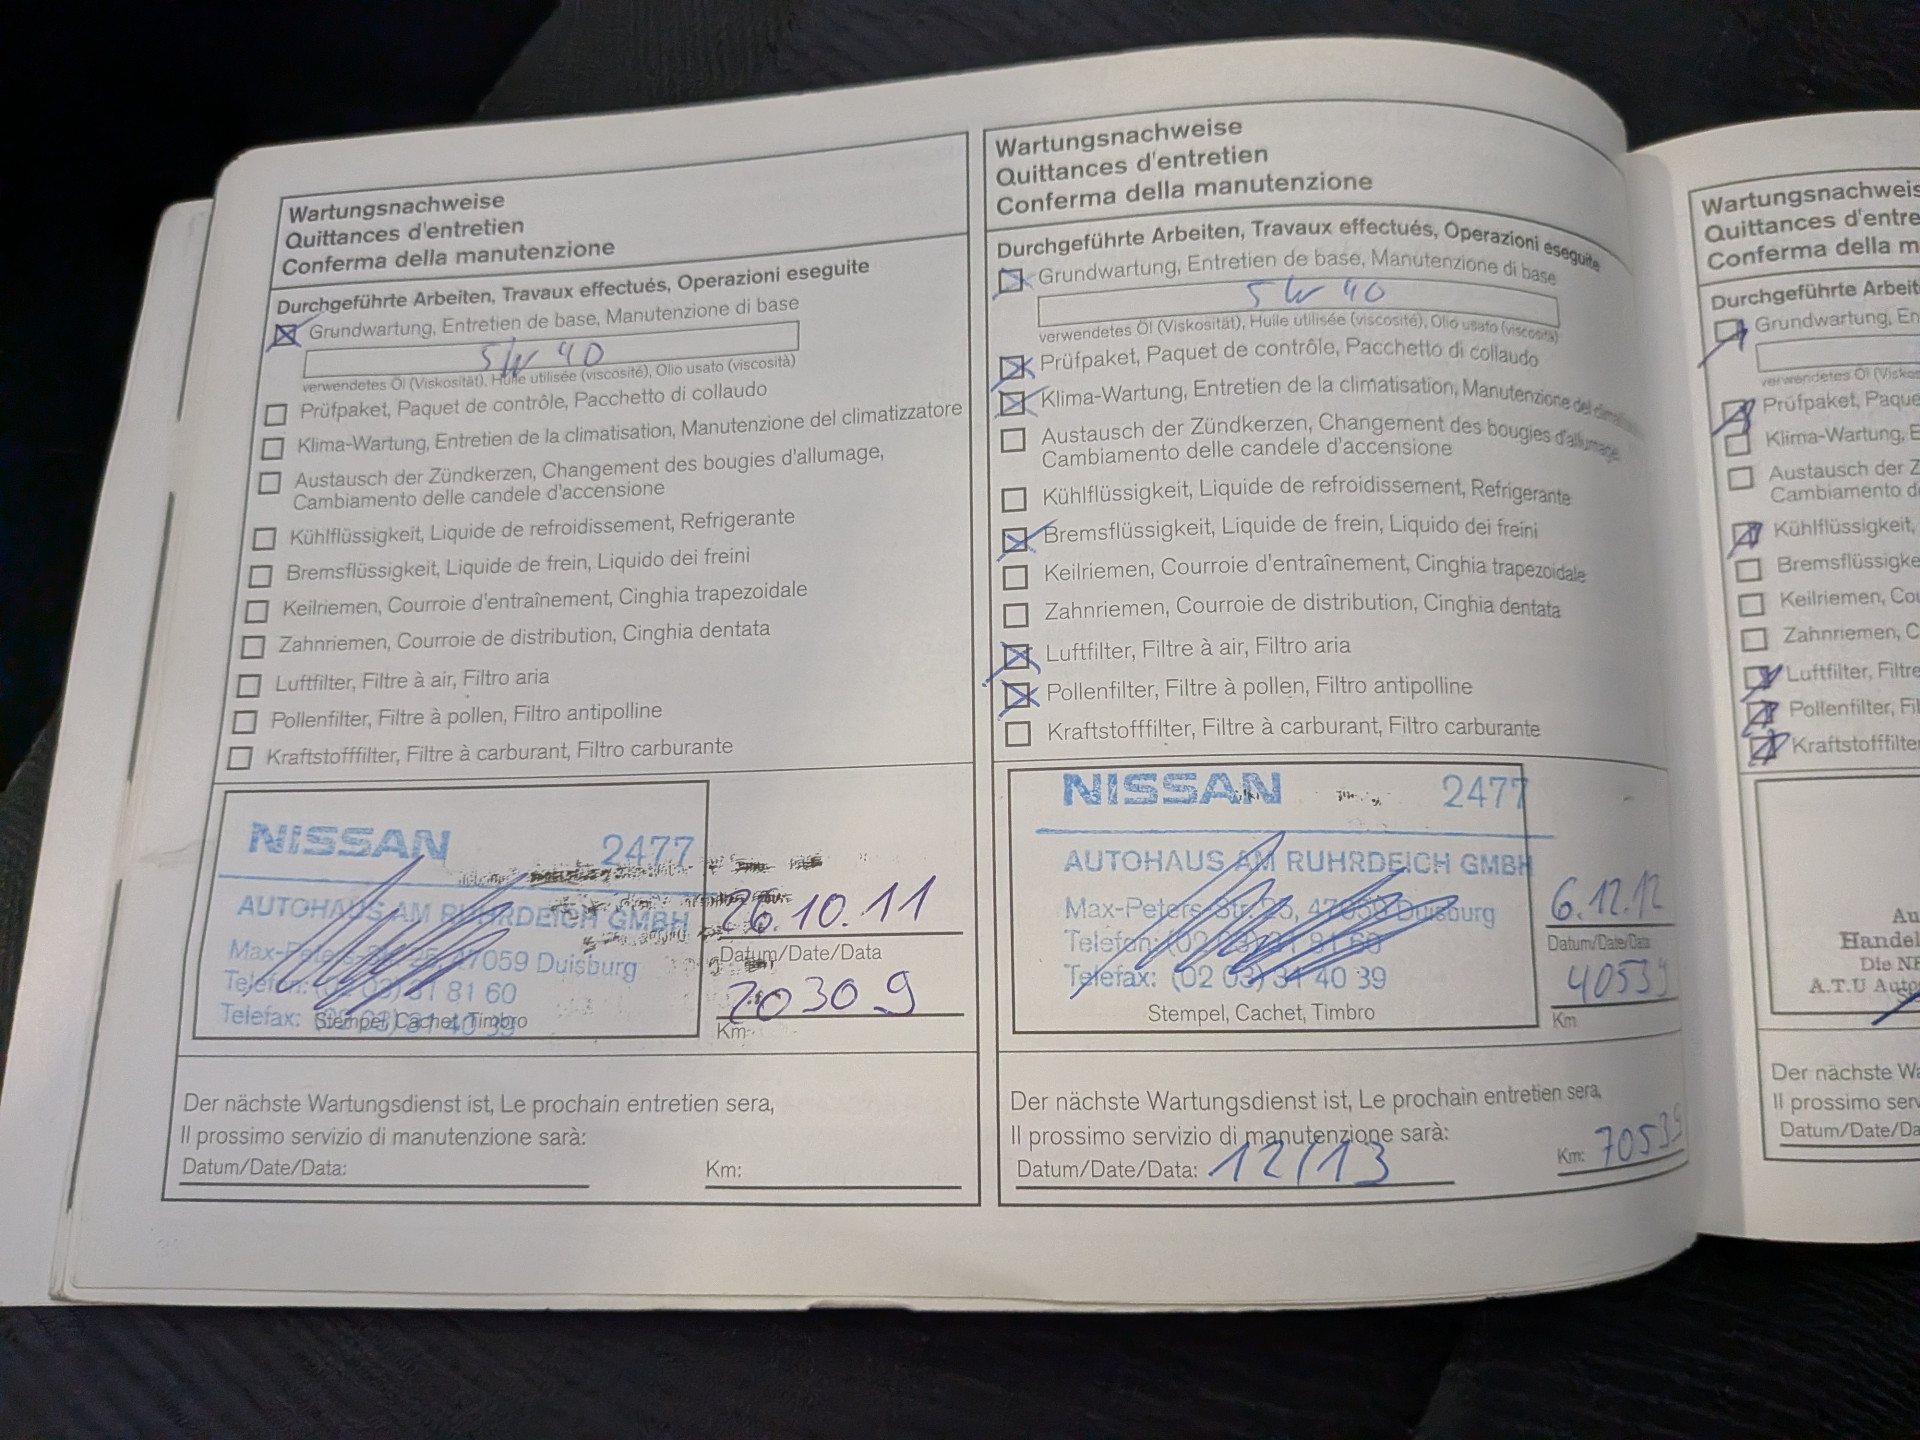 Wartungsnachweise
Quittances d'entretien
Conferma della manutenzione
Durchgeführte Arbeiten, Travaux effectués, Operazioni eseguite
Grundwartung, Entretien de base, Manutenzione di base
5W 40
verwendetes Öl (Viskosität), Huile utilisée (viscosité), Olio usato (viscosità)
Prüfpaket, Paquet de contrôle, Pacchetto di collaudo
Klima-Wartung, Entretien de la climatisation, Manutenzione del climatizzatore
Austausch der Zündkerzen, Changement des bougies d'allumage,
Cambiamento delle candele d'accensione
Kühlflüssigkeit, Liquide de refroidissement, Refrigerante
Bremsflüssigkeit, Liquide de frein, Liquido dei freini
Keilriemen, Courroie d'entraînement, Cinghia trapezoidale
Zahnriemen, Courroie de distribution, Cinghia dentata
Luftfilter, Filtre à air, Filtro aria
Pollenfilter, Filtre à pollen, Filtro antipolline
Kraftstofffilter, Filtre à carburant, Filtro carburante
NISSAN 2477
AUTOHAUS AM RUHRDEICH GMBH
Max-Peters-Str. 25, 47059 Duisburg
Telefon: (02 03) 31 81 60
Telefax: (02 03) 31 40 39
Stempel, Cachet, Timbro
26.10.11
Datum/Date/Data
20309
Km
Der nächste Wartungsdienst ist, Le prochain entretien sera,
Il prossimo servizio di manutenzione sarà:
Datum/Date/Data: Km:
Wartungsnachweise
Quittances d'entretien
Conferma della manutenzione
Durchgeführte Arbeiten, Travaux effectués, Operazioni eseguite
Grundwartung, Entretien de base, Manutenzione di base
5W 40
verwendetes Öl (Viskosität), Huile utilisée (viscosité), Olio usato (viscosità)
Prüfpaket, Paquet de contrôle, Pacchetto di collaudo
Klima-Wartung, Entretien de la climatisation, Manutenzione del
Austausch der Zündkerzen, Changement des bougies d'allumage,
Cambiamento delle candele d'accensione
Kühlflüssigkeit, Liquide de refroidissement, Refrigerante
Bremsflüssigkeit, Liquide de frein, Liquido dei freini
Keilriemen, Courroie d'entraînement, Cinghia trapezoidale
Zahnriemen, Courroie de distribution, Cinghia dentata
Luftfilter, Filtre à air, Filtro aria
Pollenfilter, Filtre à pollen, Filtro antipolline
Kraftstofffilter, Filtre à carburant, Filtro carburante
NISSAN 2477
AUTOHAUS AM RUHRDEICH GMBH
Max-Peters-Str. 25, 47059 Duisburg
Telefon: (02 03) 31 81 60
Telefax: (02 03) 31 40 39
Stempel, Cachet, Timbro
6.12.12
Datum/Date/Data
40539
Km
Der nächste Wartungsdienst ist, Le prochain entretien sera,
Il prossimo servizio di manutenzione sarà:
Datum/Date/Data: 12/13 Km: 70539
Wartungsnachweis
Quittances d'entre
Conferma della m
Durchgeführte Arbeit
Grundwartung, En
verwendetes Öl (Viskos
Prüfpaket, Paque
Klima-Wartung, E
Austausch der Z
Cambiamento d
Kühlflüssigkeit,
Bremsflüssigke
Keilriemen, Cou
Zahnriemen, C
Luftfilter, Filtre
Pollenfilter, Fil
Kraftstofffilter
Au
Handel
Die NE
A.T.U Auto
Der nächste Wa
Il prossimo serv
Datum/Date/Da